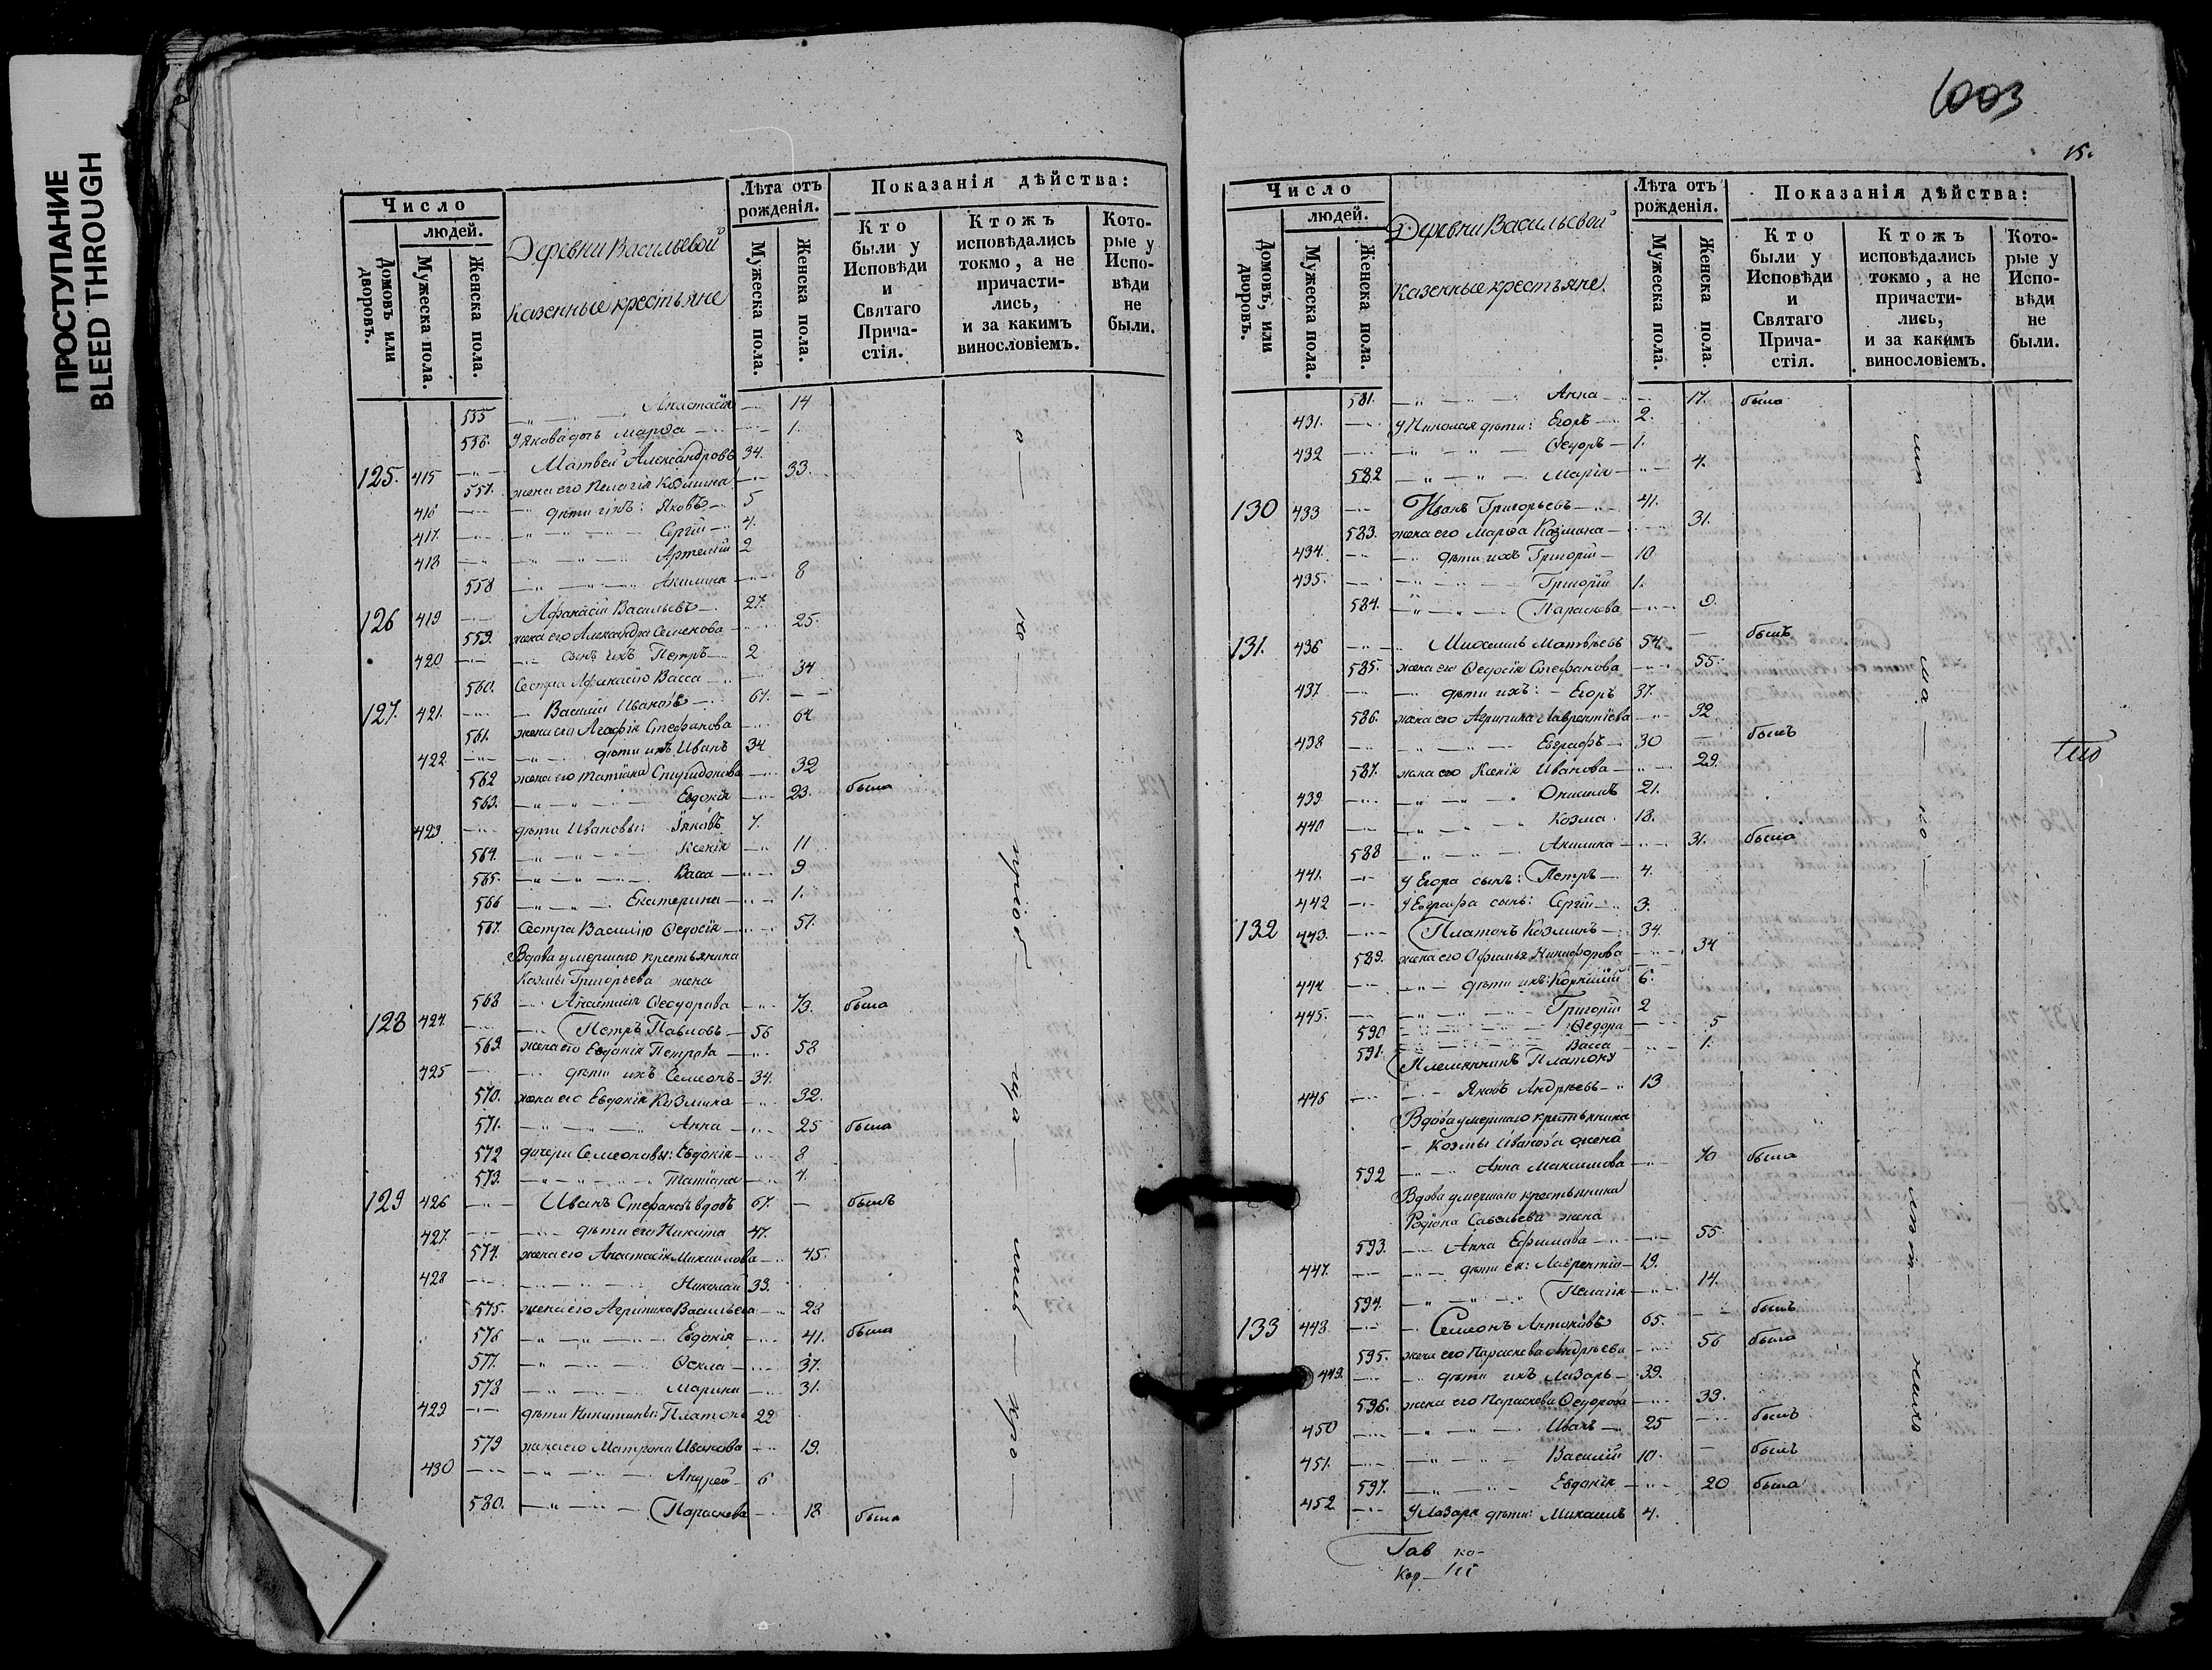 ПРОСТУПАНИЕ
BLEED THROUGH
Число
людей.
Домовъ или дворовъ.
Мужеска пола.
Женска пола.
Деревни Васильевой
казенные крестьяне
Лѣта отъ рожденія.
Мужеска пола.
Женска пола.
Показанія дѣйства:
Кто были у Исповѣди и Святаго Прича-стія.
Ктожъ исповѣдались токмо, а не причасти-лись, и за какимъ винословіемъ.
Кото-рые у Испо-вѣди не были.
555 Анастасія 14
556. У Якова дочь Марѳа 1.
125. 415 Матвей Александровъ 34.
557. жена его Пелагія Козмина 33.
416 дѣти ихъ: Яковъ 5
417. Сергій 4.
418 Артемій 2
558 Акилина 8
126 419 Афанасій Васильевъ 27.
559. жена его Александра Семенова 25.
420 сынъ ихъ Петръ 2
560. Сестра Афанасію Васса 34
127. 421. Василій Ивановъ 67.
561. жена его Агафія Стефанова 64
422 дѣти ихъ Иванъ 34
562 жена его Татіана Спиридонова 32
563. Евдокія 23. была
423 дѣти Ивановы: Яковъ 7.
564. Ксенія 11
565. Васса 9
566 Екатерина 1.
567. Сестра Василію Ѳедосія 57.
Вдова умершаго крестьянина
Козмы Григорьева жена
568 Анастасія Ѳеодорова 73. была
128 424. Петръ Павловъ 56
569 жена его Евдокія Петрова 58
425 дѣти ихъ Семеонъ 34.
570. жена его Евдокія Козмина 32.
571. Анна 25 была
572 дочери Семеоновы: Евдокія 8
573. Татіана 4.
129 426 Иванъ Стефановъ вдовъ 67. былъ
427. дѣти его Никита 47.
574. жена его Анастасія Михаилова 45.
428 Николай 33.
575. жена его Агрипина Васильева 28
576 Евдокія 41. была
577. Ѳекла 37.
578 Марина 31.
429 дѣти Никитины: Платонъ 22
579 жена его Матрона Иванова 19.
430 Андрей 6
580. Параскева 18 была
1003
15.
Число
людей.
Домовъ, или дворовъ.
Мужеска пола.
Женска пола.
Деревни Васильевой
казенные крестьяне.
Лѣта отъ рожденія.
Мужеска пола.
Женска пола.
Показанія дѣйства:
Кто были у Исповѣди и Святаго Прича-стія.
Ктожъ исповѣдались токмо, а не причасти-лись, и за какимъ винословіемъ.
Кото-рые у Испо-вѣди не были.
581. Анна 17. была
431. У Николая дѣти: Егоръ 2.
432 Ѳедоръ 1.
582 Марія 4.
130 433 Иванъ Григорьевъ 41.
583. жена его Марѳа Козмина 31.
434. дѣти ихъ Григорій 10
435. Григорій 1.
584. Параскева
131. 436 Михаилъ Матвѣевъ 54. былъ
585. жена его Ѳедосія Стефанова 55.
437. дѣти ихъ: Егоръ 37.
586. жена его Агрипина Лаврентіева 32.
438 Евграфъ 30 былъ
587. жена его Ксенія Иванова 29.
439 Онисимъ 21.
440 Козма 18.
588 Акилина 31. была
441. У Егора сынъ: Петръ 4.
442 У Евграфа сынъ: Сергій 3.
132 443. Платонъ Козминъ 34.
589. жена его Офимья Никифорова 34
444 дѣти ихъ Корнилій 6.
445. Григорій 2
590 Ѳедора 5
591. Васса 1.
Племянникъ Платону
446 Яковъ Андрѣевъ 13
Вдова умершаго крестьянина
Козмы Иванова жена
592 Анна Максимова 70 была
Вдова умершаго крестьянина
Родіона Савельева жена
593. Анна Ефимова 55.
447. дѣти ея: Лаврентій 19.
594. Пелагія 14.
133 448 Семеонъ Антоновъ 65. былъ
595. жена его Параскева Андрѣева 56 была
449. дѣти ихъ Лазарь 39.
596. жена его Параскева Ѳедорова 33.
450 Иванъ 25 былъ
451. Василій 10. былъ
597. Евдокія 20 была
452 У Лазаря дѣти: Михаилъ 4.